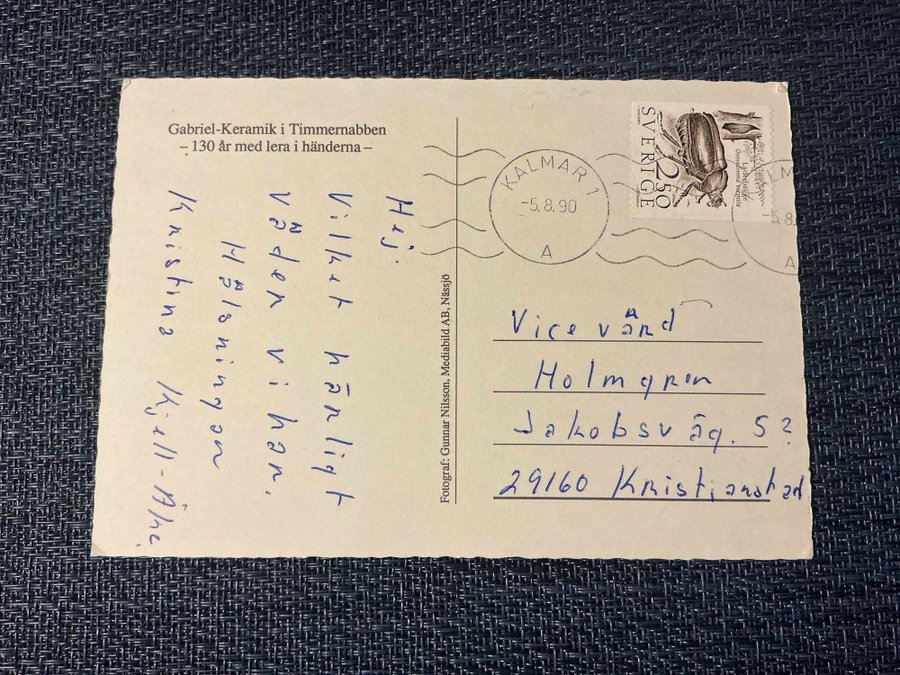 Gabriel-Keramik i Timmernabben
– 130 år med lera i händerna –
Hej
Vilket härligt
väder vi har.
Hälsningar
Kristina Kjell-Åke
Fotograf: Gunnar Nilsson, Mediabild AB, Nässjö
KALMAR 1
-5.8.90
A
SVERIGE
2.50
5.8.
A
Vicevärd
Holmgren
Jakobsväg. 5
29160 Kristianstad